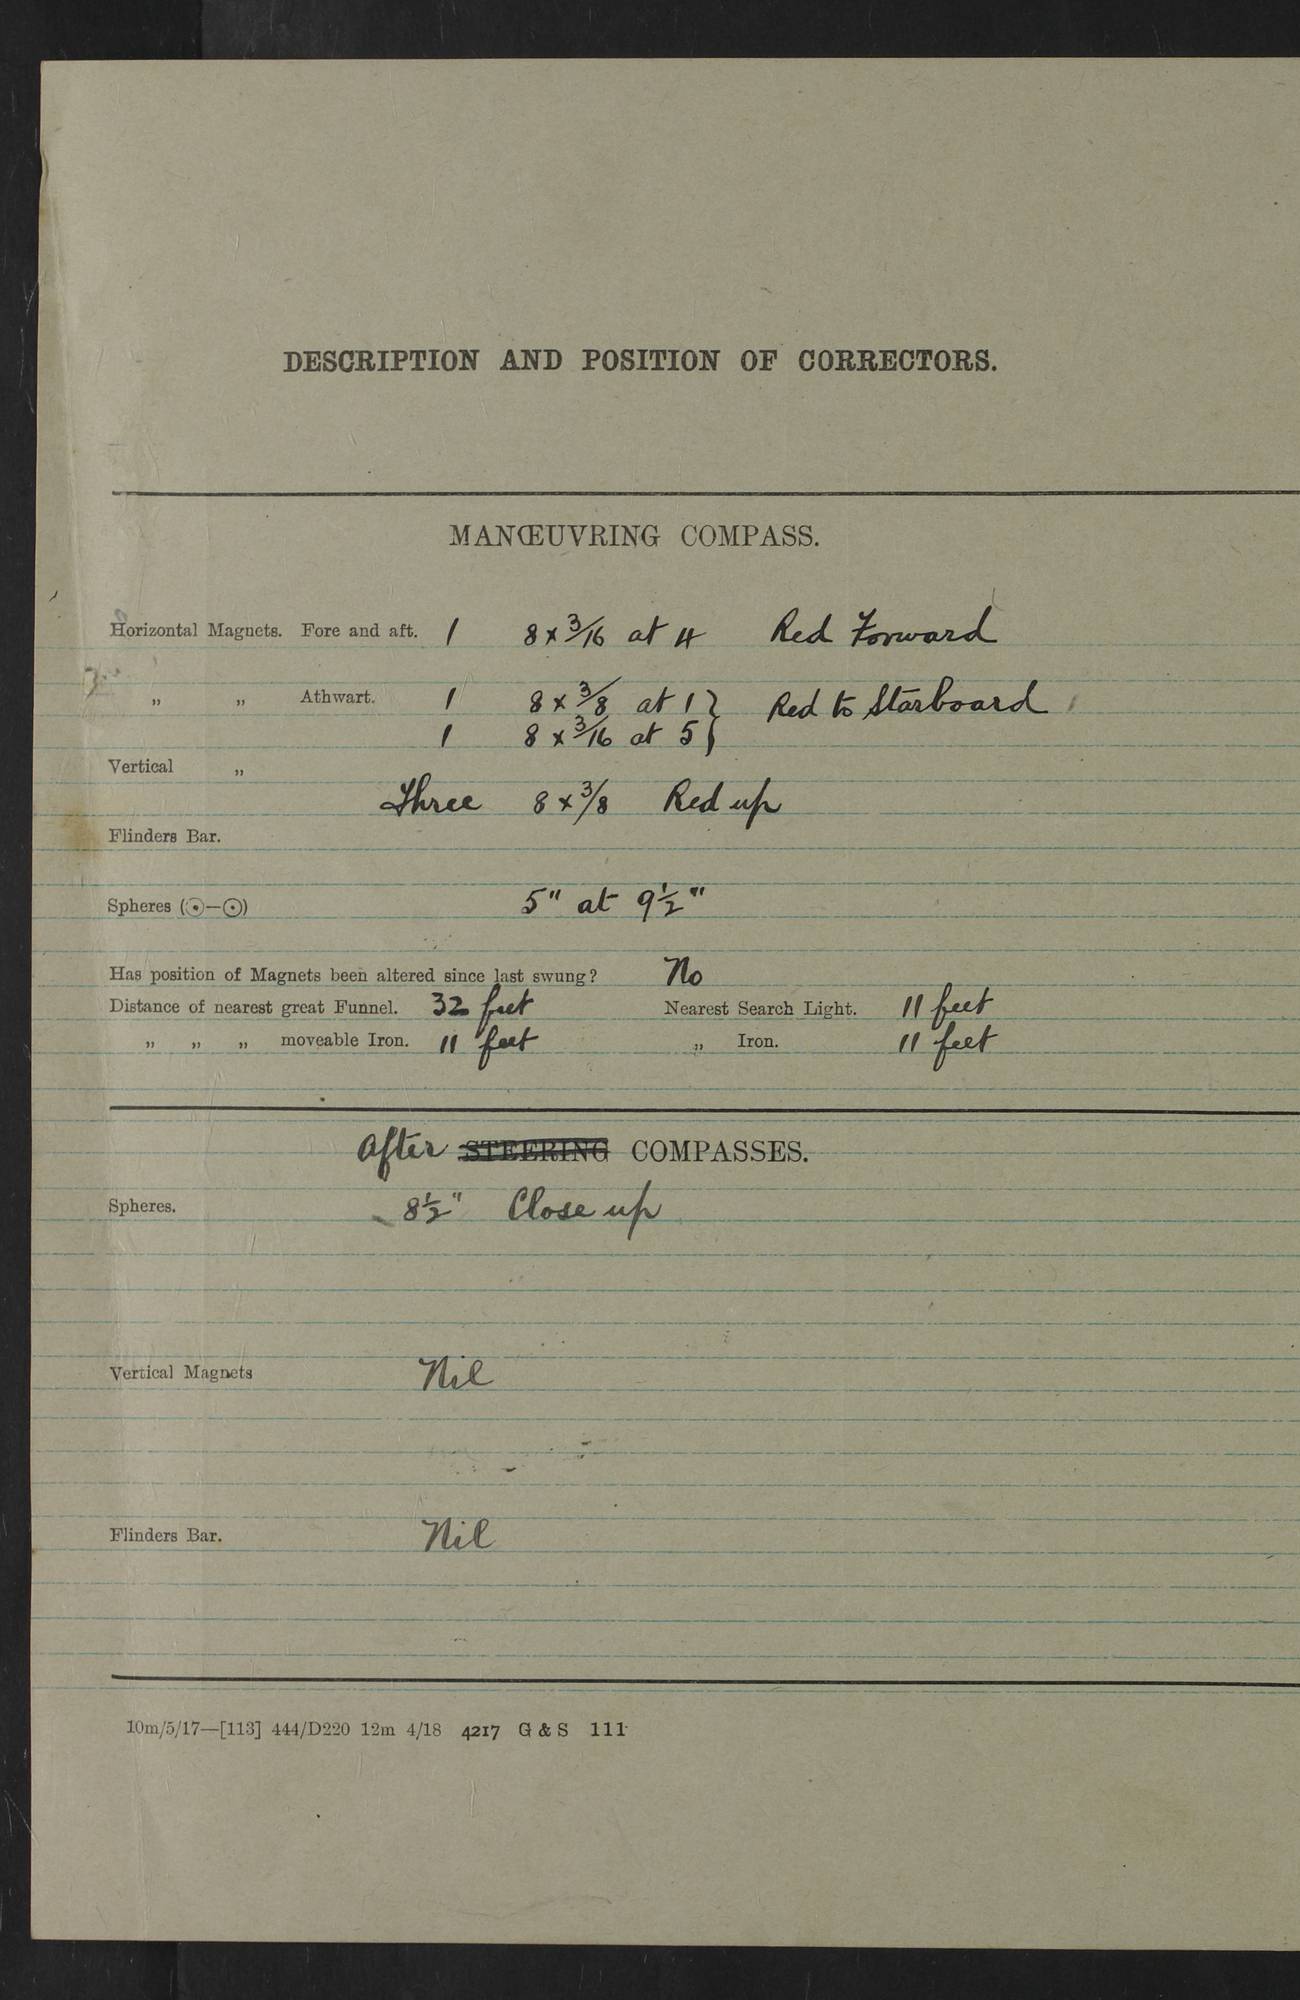 DESCRIPTION AND POSITION OF CORRECTORS.
MANŒUVRING COMPASS.
Horizontal Magnets. Fore and aft. 1 8 x 3/16 at 4 Red Forward
„ „ Athwart. 1 8 x 3/8 at 1 } Red to Starboard
1 8 x 3/16 at 5 }
Vertical „
Three 8 x 3/8 Red up
Flinders Bar.
Spheres (⊙—⊙) 5" at 9½"
Has position of Magnets been altered since last swung? No
Distance of nearest great Funnel. 32 feet Nearest Search Light. 11 feet
„ „ „ moveable Iron. 11 feet „ Iron. 11 feet
After STEERING COMPASSES.
Spheres. 8½" Close up
Vertical Magnets Nil
Flinders Bar. Nil
10m/5/17—[113] 444/D220 12m 4/18 4217 G & S 111